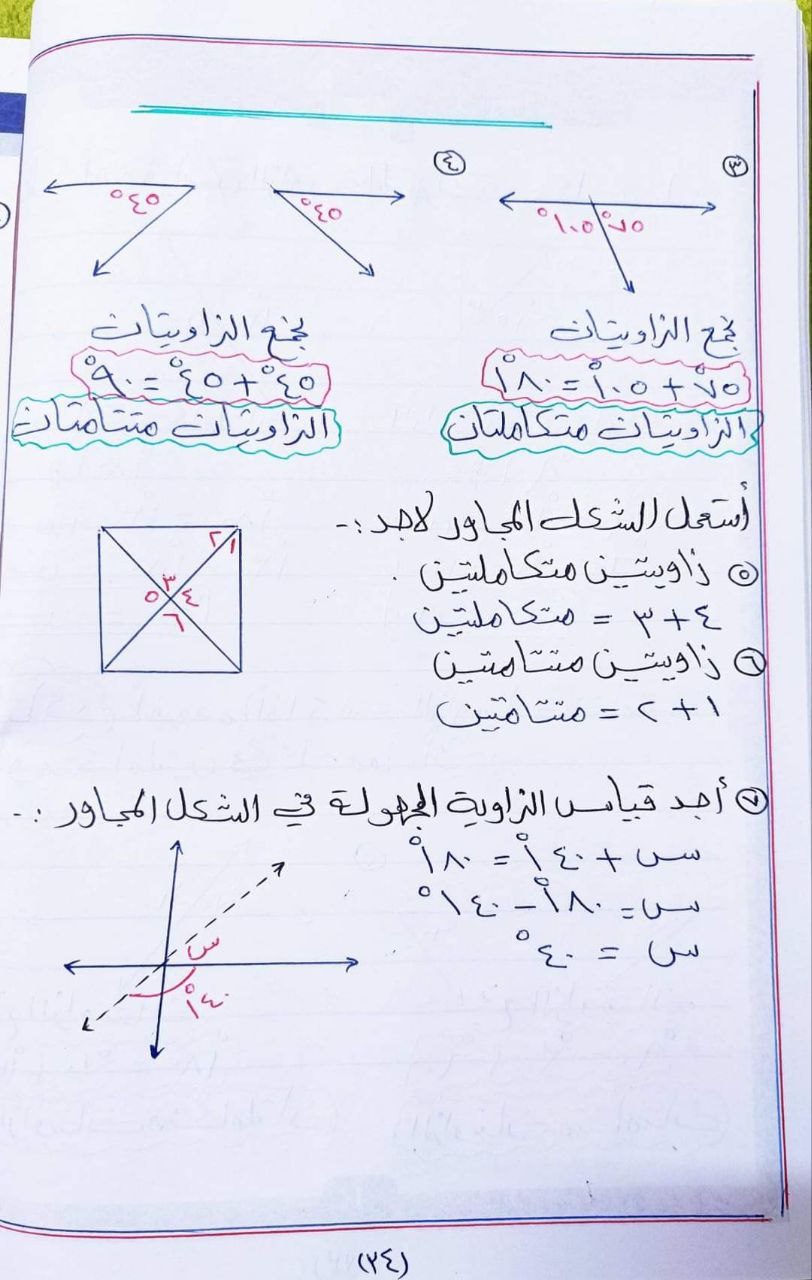 ٣
°١٠٥ °٧٥
٤
°٤٥ °٤٥
نجمع الزاويتان
°٧٥ + °١٠٥ = °١٨٠
الزاويتان متكاملتان
نجمع الزاويتان
°٤٥ + °٤٥ = °٩٠
الزاويتان متتامتان
أستعمل الشكل المجاور لاجد :-
٥ زاويتين متكاملتين .
٤ + ٣ = متكاملتين
٦ زاويتين متتامتين
١ + ٢ = متتامتين
٢ ١
٣
٥ ٤
٦
٧ أجد قياس الزاوية المجهولة في الشكل المجاور :-
س + °١٤٠ = °١٨٠
س = °١٨٠ - °١٤٠
س = °٤٠
س
°١٤٠
(٢٤)